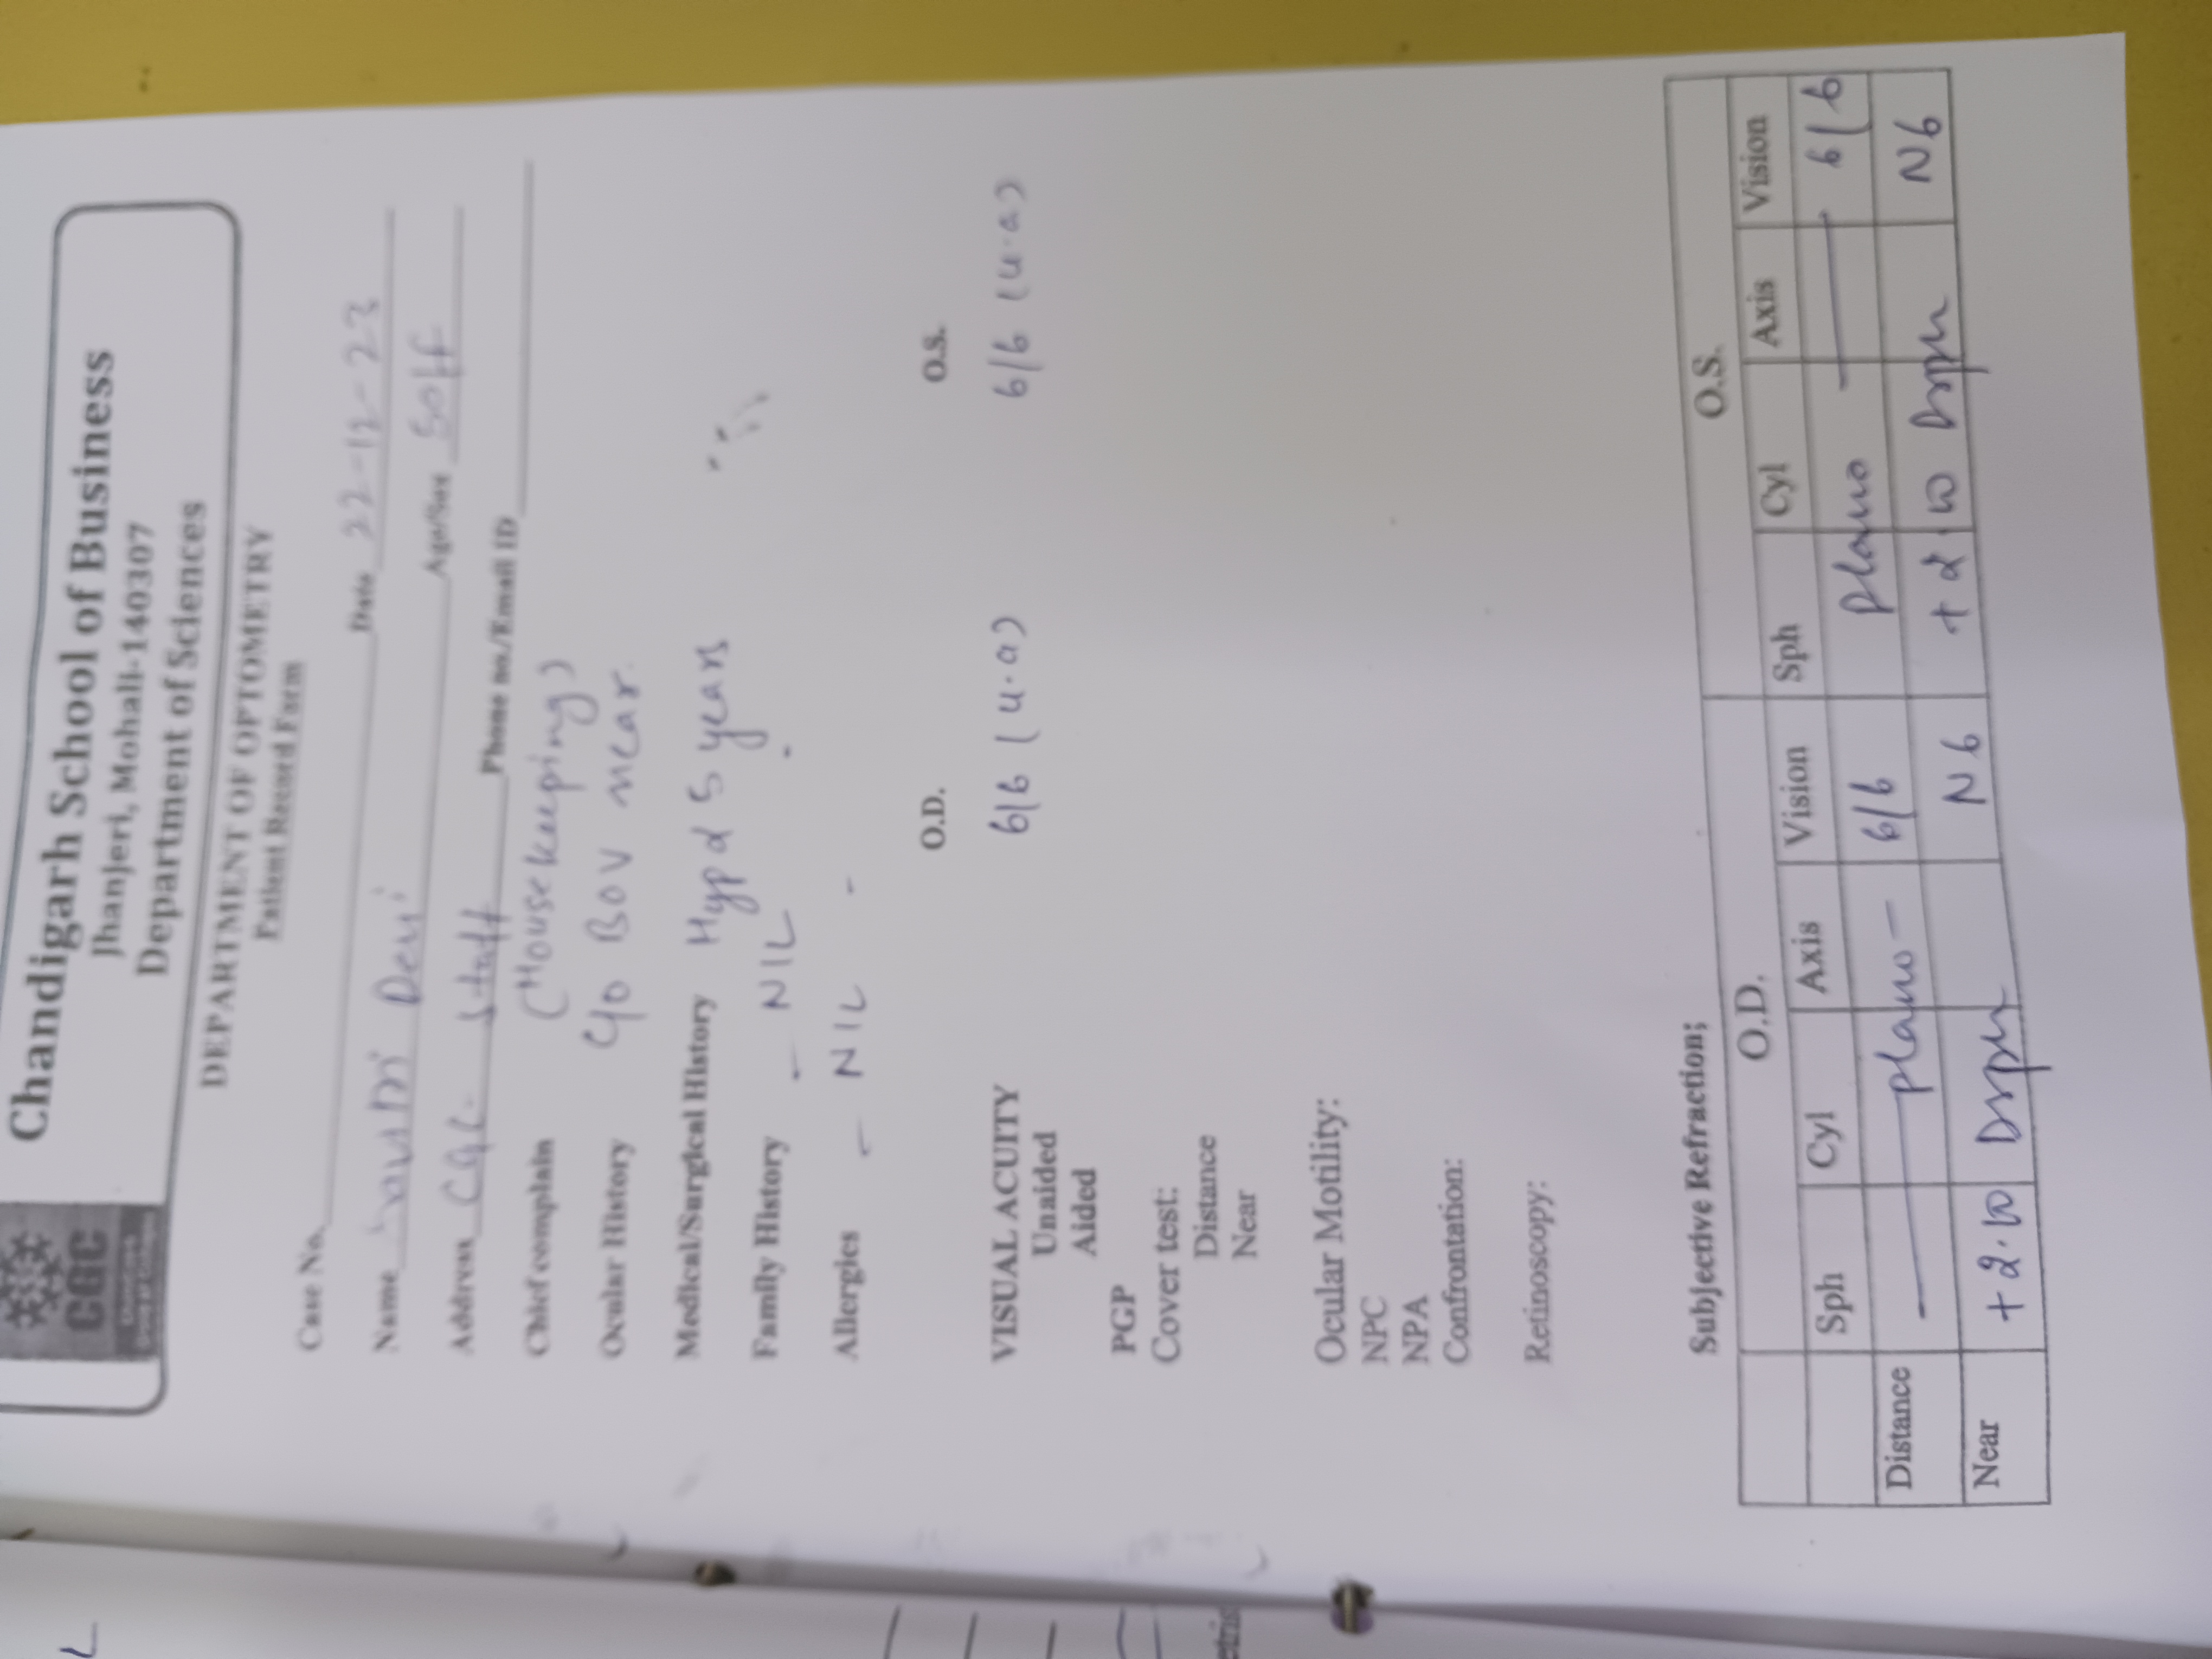 L
CGC
Chandigarh
Group of Colleges
Chandigarh School of Business
Jhanjeri, Mohali-140307
Department of Sciences
DEPARTMENT OF OPTOMETRY
Patient Record Form
Case No.
Date 22-12-23
Name Savitri Devi
Age/Sex 50/F
Address CGC Staff Phone no./Email ID
Chief complain (Housekeeping)
Ocular History C/o BOV near.
Medical/Surgical History Hyp 5 years
Family History - NIL -
Allergies - NIL -
O.D. O.S.
VISUAL ACUITY 6/6 (u.a) 6/6 (u.a)
Unaided
Aided
PGP
Cover test:
Distance
Near
etris
Ocular Motility:
NPC
NPA
Confrontation:
Retinoscopy:
Subjective Refraction;
O.D. O.S.
Sph Cyl Axis Vision Sph Cyl Axis Vision
Distance — plano — 6/6 plano — 6/6
Near +2.00 Dsph N6 +2.00 Dsph N6